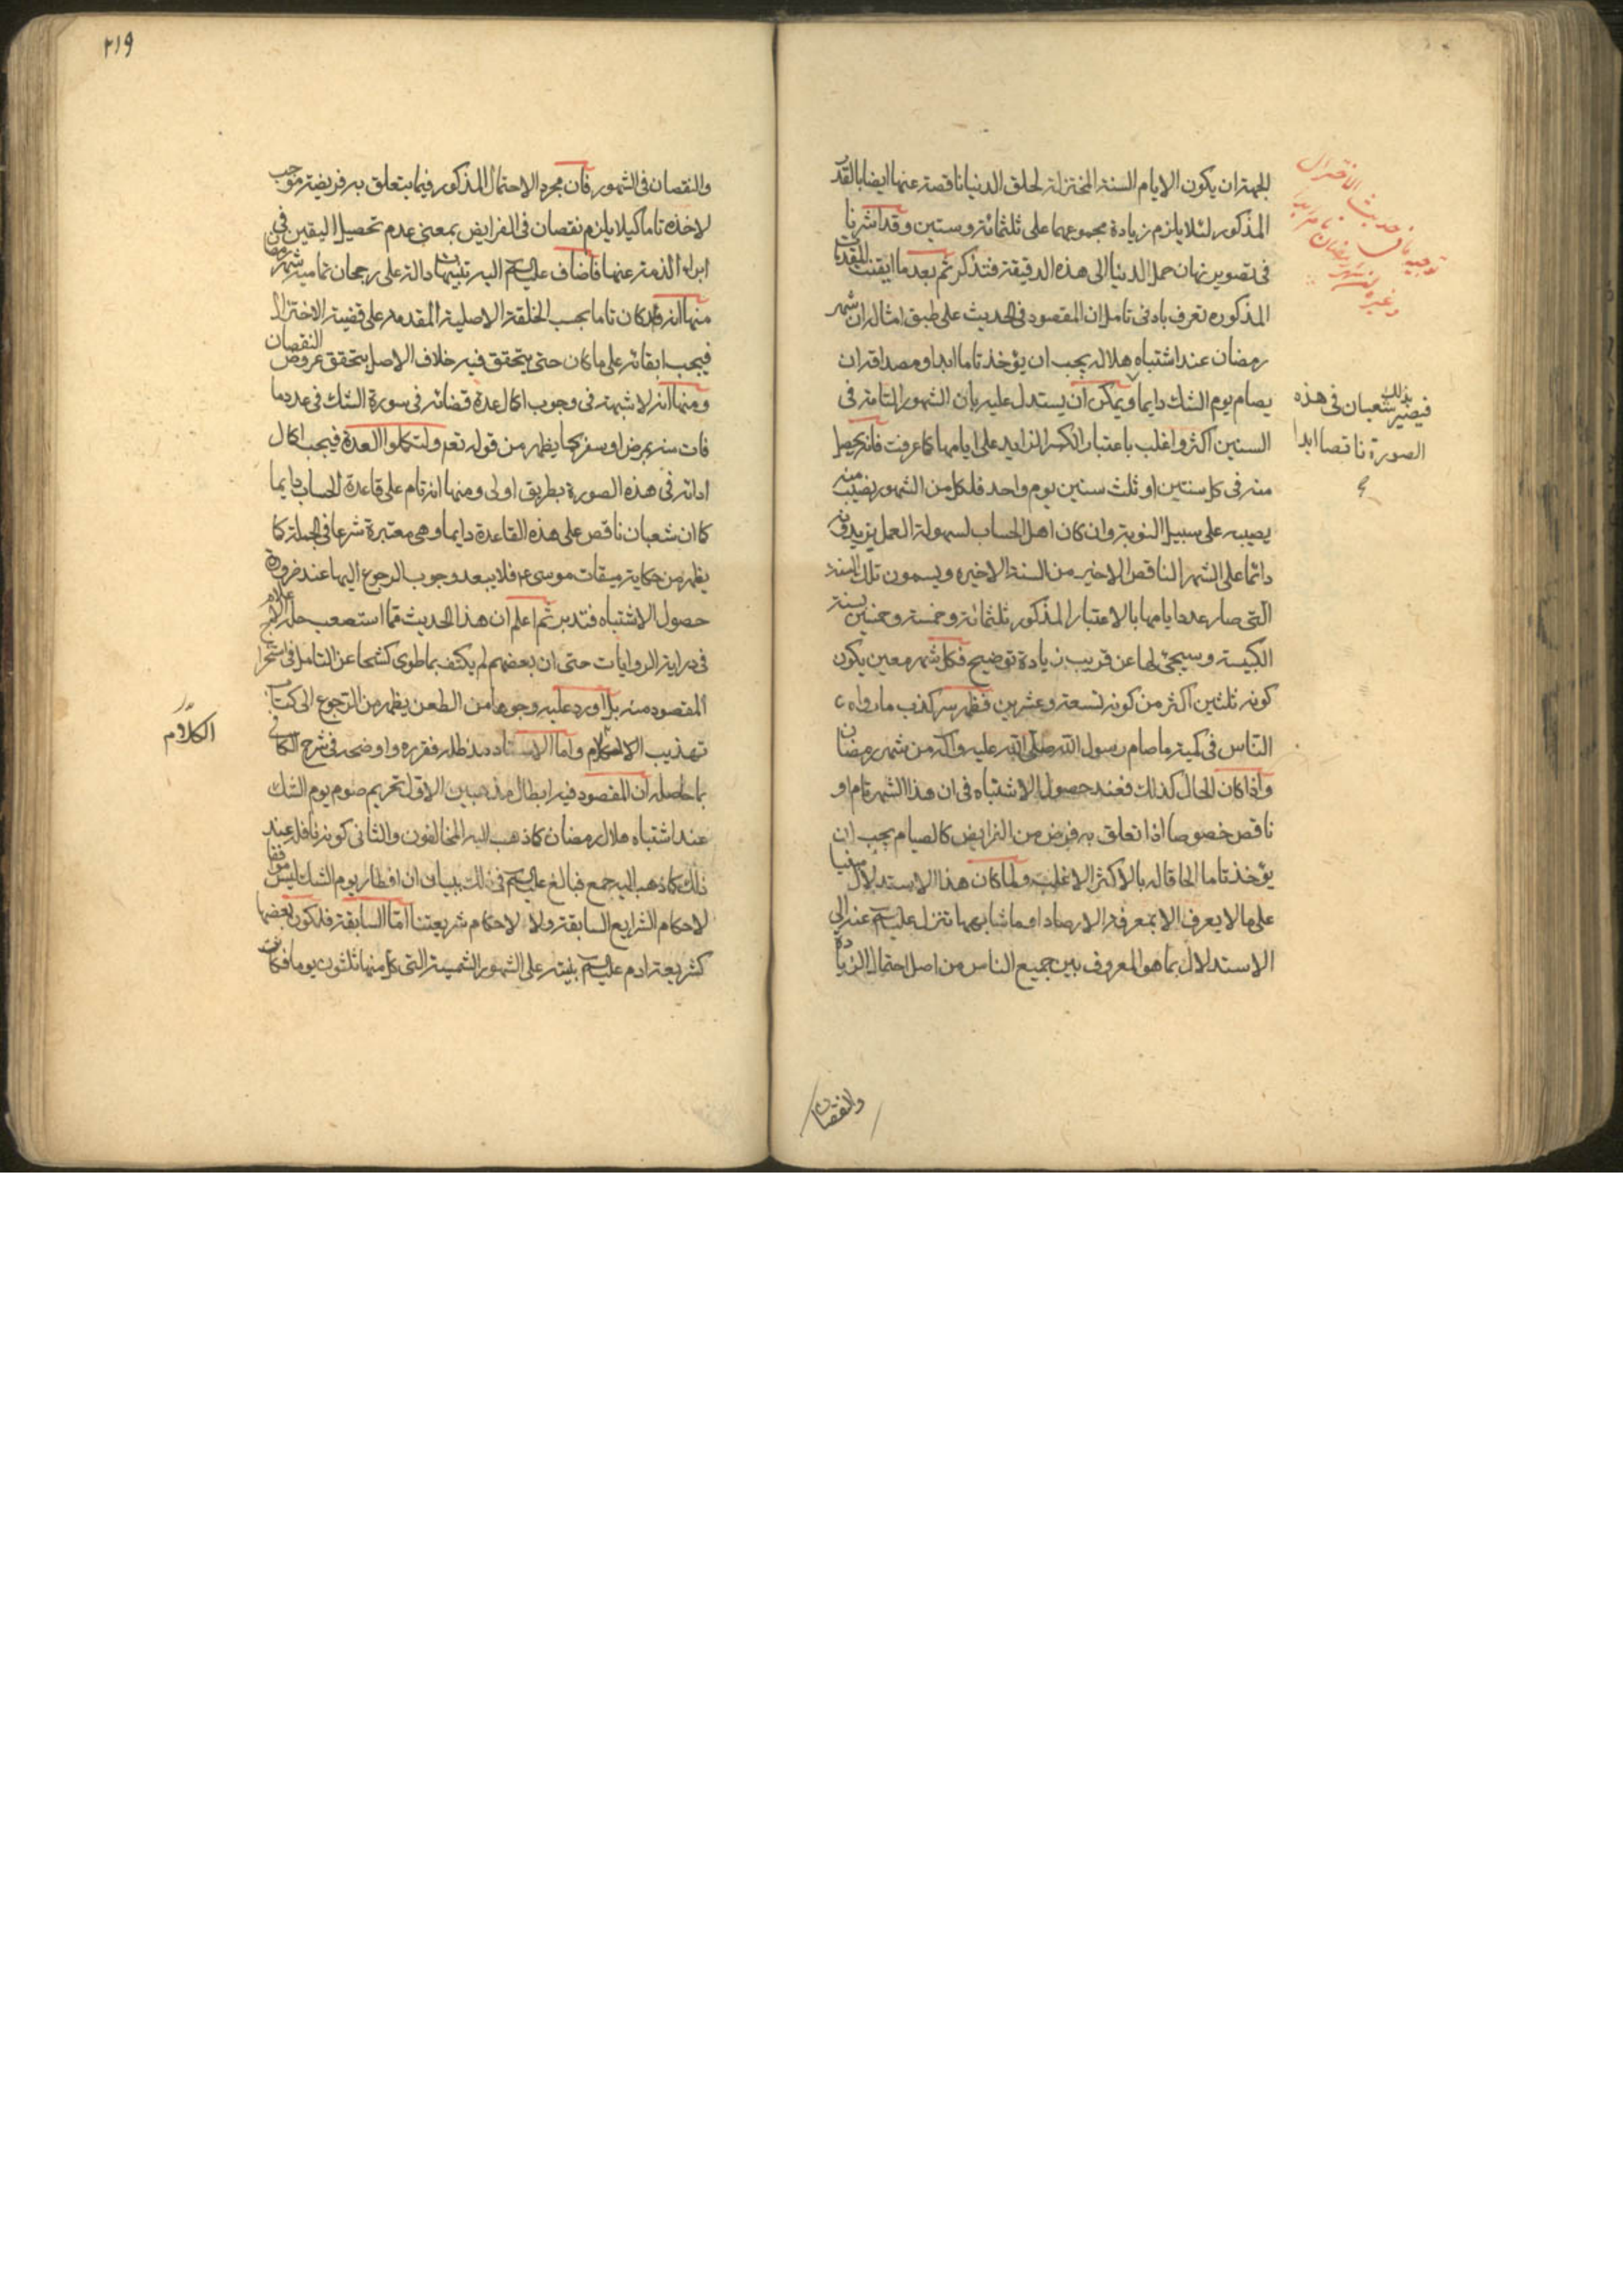 للجهة ان يكون الايام السنة المختزلة لخلق الدنيا ناقصة عنها ايضا بالقدر
المذكور لئلا يلزم زيادة مجموعهما على ثلثمائة وستين وقد اشرنا
فى تصوير زمان حمل الدنيا الى هذه الدقيقة فتذكر ثم بعد ما ايقنت المقدمات
المذكوره تعرف بادنى تامل ان المقصود فى الحديث على طبق امثاله ان شهر
رمضان عند اشتباه هلاله يجب ان يؤخذ تاما ابدا ومصداقه ان
يصام يوم الشك دايما ويمكن ان يستدل عليه بان الشهور التامة فى
السنين اكثر واغلب باعتبار الكسر الزايد على ايامها كما عرفت فانه يحصل
منه فى كل سنتين او ثلث سنين يوم واحد فلكل من الشهور نصيب منه
يصيبه على سبيل النوبة وان كان اهل الحساب لسهولة العمل يزيدونه
دائما على الشهر الناقص الاخير من السنة الاخيره ويسمون تلك السنة
التى صار عدد ايامها بالاعتبار المذكور ثلثمائة وخمسة وخمسين بسنة
الكبيسة وسيجئ لها عن قريب زيادة توضيح فكل شهر معين يكون
كونه ثلثين اكثر من كونه تسعة وعشرين فظهر سر كذب ما رواه
الناس فى كمية ما صام رسول الله صلى الله عليه وآله من شهر رمضان
واذا كان الحال كذلك فعند حصول الاشتباه فى ان هذا الشهر تام او
ناقص خصوصا اذا تعلق به فرض من الفرايض كالصيام يجب ان
يؤخذ تاما الحاقا له بالاكثر الاغلب ولما كان هذا الاستدلال مبنيا
على ما لا يعرف الا بمعرفة الارصاد او ما شابهها تنزل عليه السلم عنه الى
الاستدلال بما هو المعروف بين جميع الناس من اصل احتمال الزيادة
والنقصان
توجيه حديث الاختزال
فيصير بذلك شعبان فى هذه
الصورة ناقصا ابدا
٢١٩
والنقصان فى الشهور فان مجرد الاحتمال المذكور فيما يتعلق به فريضة موجب
لاخذه تاما كيلا يلزم نقصان فى الفرايض بمعنى عدم تحصيل اليقين فى
ابراء الذمة عنها فاضاف عليه السلم اليه تنبيهات دالة على رجحان تمامية شهر رمضان
منها انه قد كان تاما بحسب الخلقة الاصلية المقدمة على قضية الاختزال
فيجب ابقائه على ما كان حتى يتحقق فيه خلاف الاصل بتحقق عروض النقصان
ومنها انه لا شبهة فى وجوب اكمال عدة قضائه فى صورة الشك فى عدد ما
فات منه بمرض او سفر كما يظهر من قوله تعم ولتكملوا العدة فيجب اكمال
ادائه فى هذه الصورة بطريق اولى ومنها انه تام على قاعدة الحساب دايما
كما ان شعبان ناقص على هذه القاعدة دايما وهى معتبرة شرعا فى الجملة كما
يظهر من حكاية ميقات موسى ع فلا يبعد وجوب الرجوع اليها عند ضرورة
حصول الاشتباه فتدبر ثم اعلم ان هذا الحديث مما استصعب حله الاعلام
فى دراية الروايات حتى ان بعضهم لم يكتف بما طوى كشحا عن التامل فى استخراج
المقصود منه بل اورد عليه وجوها من الطعن يظهر من الرجوع الى كتاب
تهذيب الاحكام واما الاستاد مد ظله فقرره واوضحه فى شرح الكافى
بما حاصله ان المقصود فيه ابطال مذهبين الاول تحريم صوم يوم الشك
عند اشتباه هلال رمضان كما ذهب اليه المخالفون والثانى كونه نافلة عند
ذلك كما ذهب اليه جمع فبالغ عليه السلم فى ذلك ببيان ان افطار يوم الشك ليس موافقا
لاحكام الشرايع السابقة ولا لاحكام شريعتنا اما السابقة فلكون بعضها
كشريعة ادم عليه السلم مبنية على الشهور الشمسية التى كل منها ثلثون يوما فكانت
الكلام